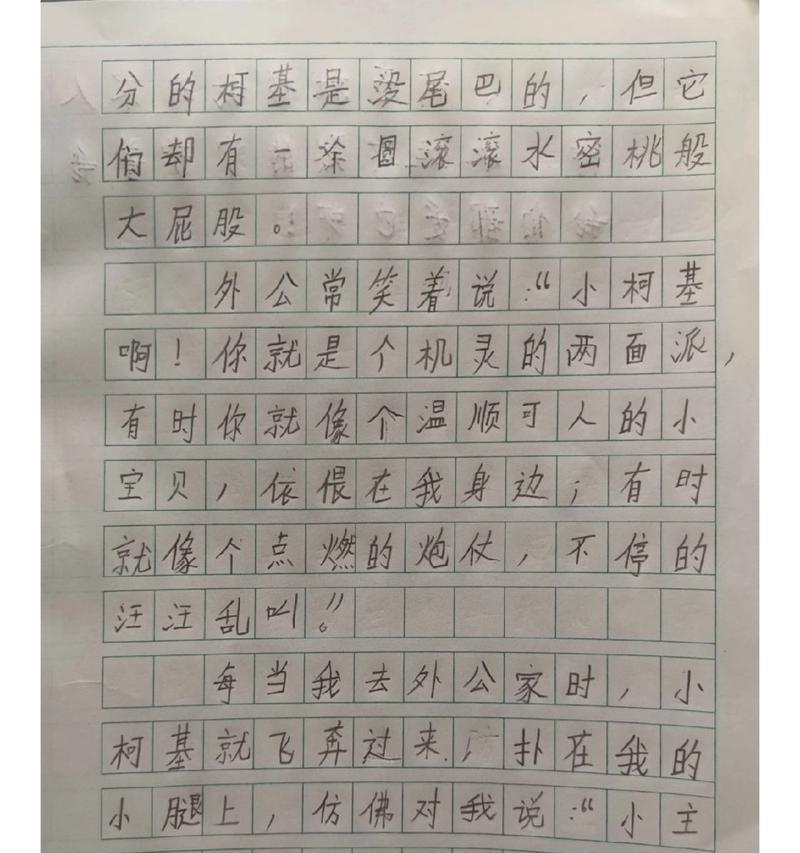 分的柯基是没尾巴的，但它
俏却有一余圆滚滚水密桃般
大屁股。
外公常笑着说：“小柯基
啊！你就是个机灵的两面派，
有时你就像个温顺可人的小
宝贝，依偎在我身边；有时
就像个点燃的炮仗，不停的
汪汪乱叫！”
每当我去外公家时，小
柯基就飞奔过来，扑在我的
小腿上，仿佛对我说：“小主